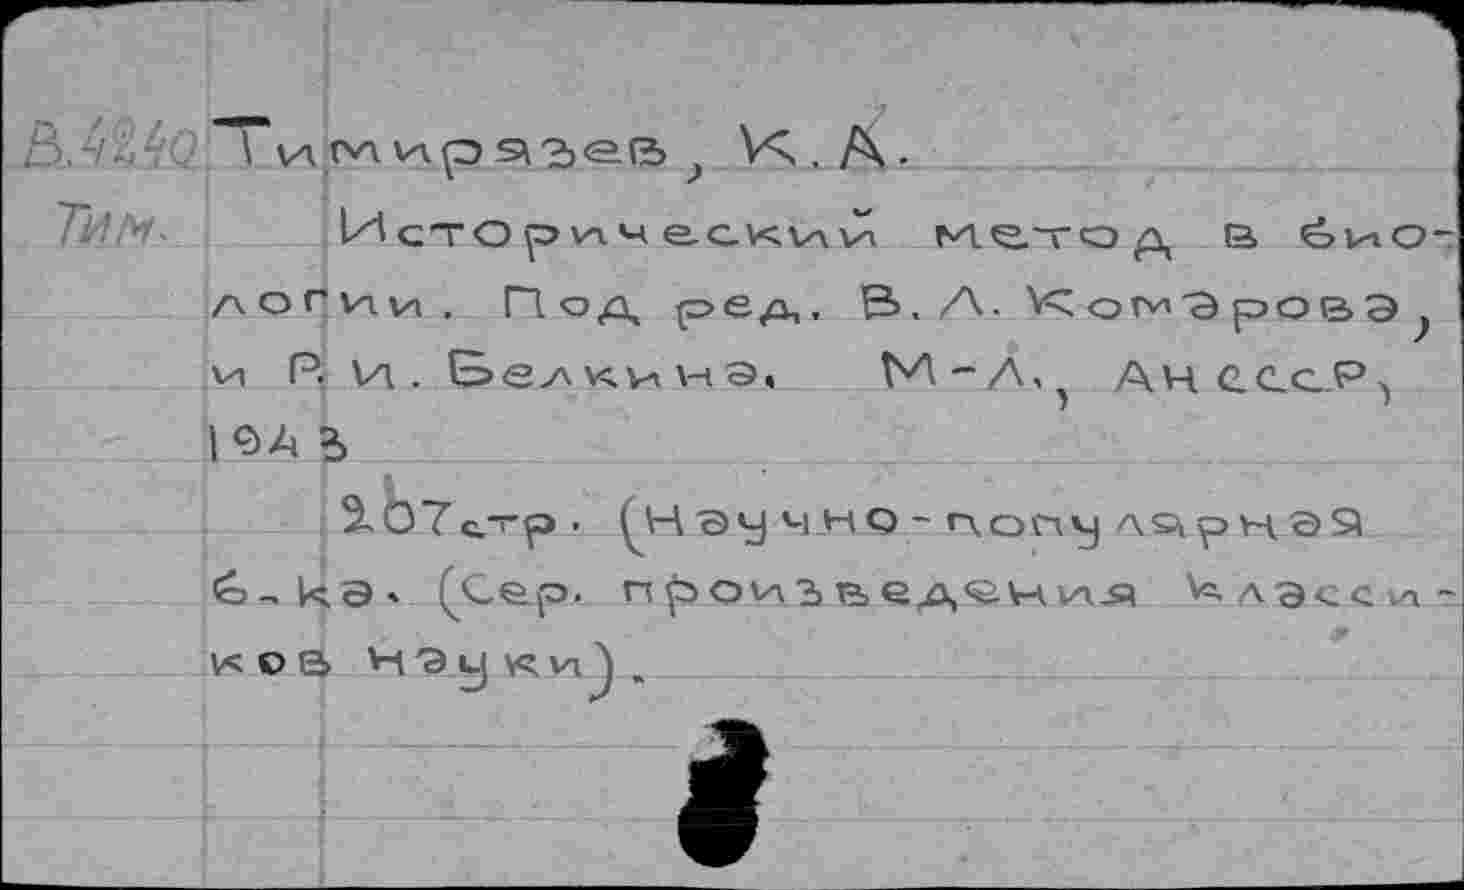 В.4240 Тимирязев, К. А.
Тим. Исторический метод в био-
логии. Под ред. В. Л. Комарова,
и Р. И. Белкина. М-Л., АН СССР,
1943
267 стр. (Научно-популярная
б-ка. (Сер. произведения класси-
ков науки).